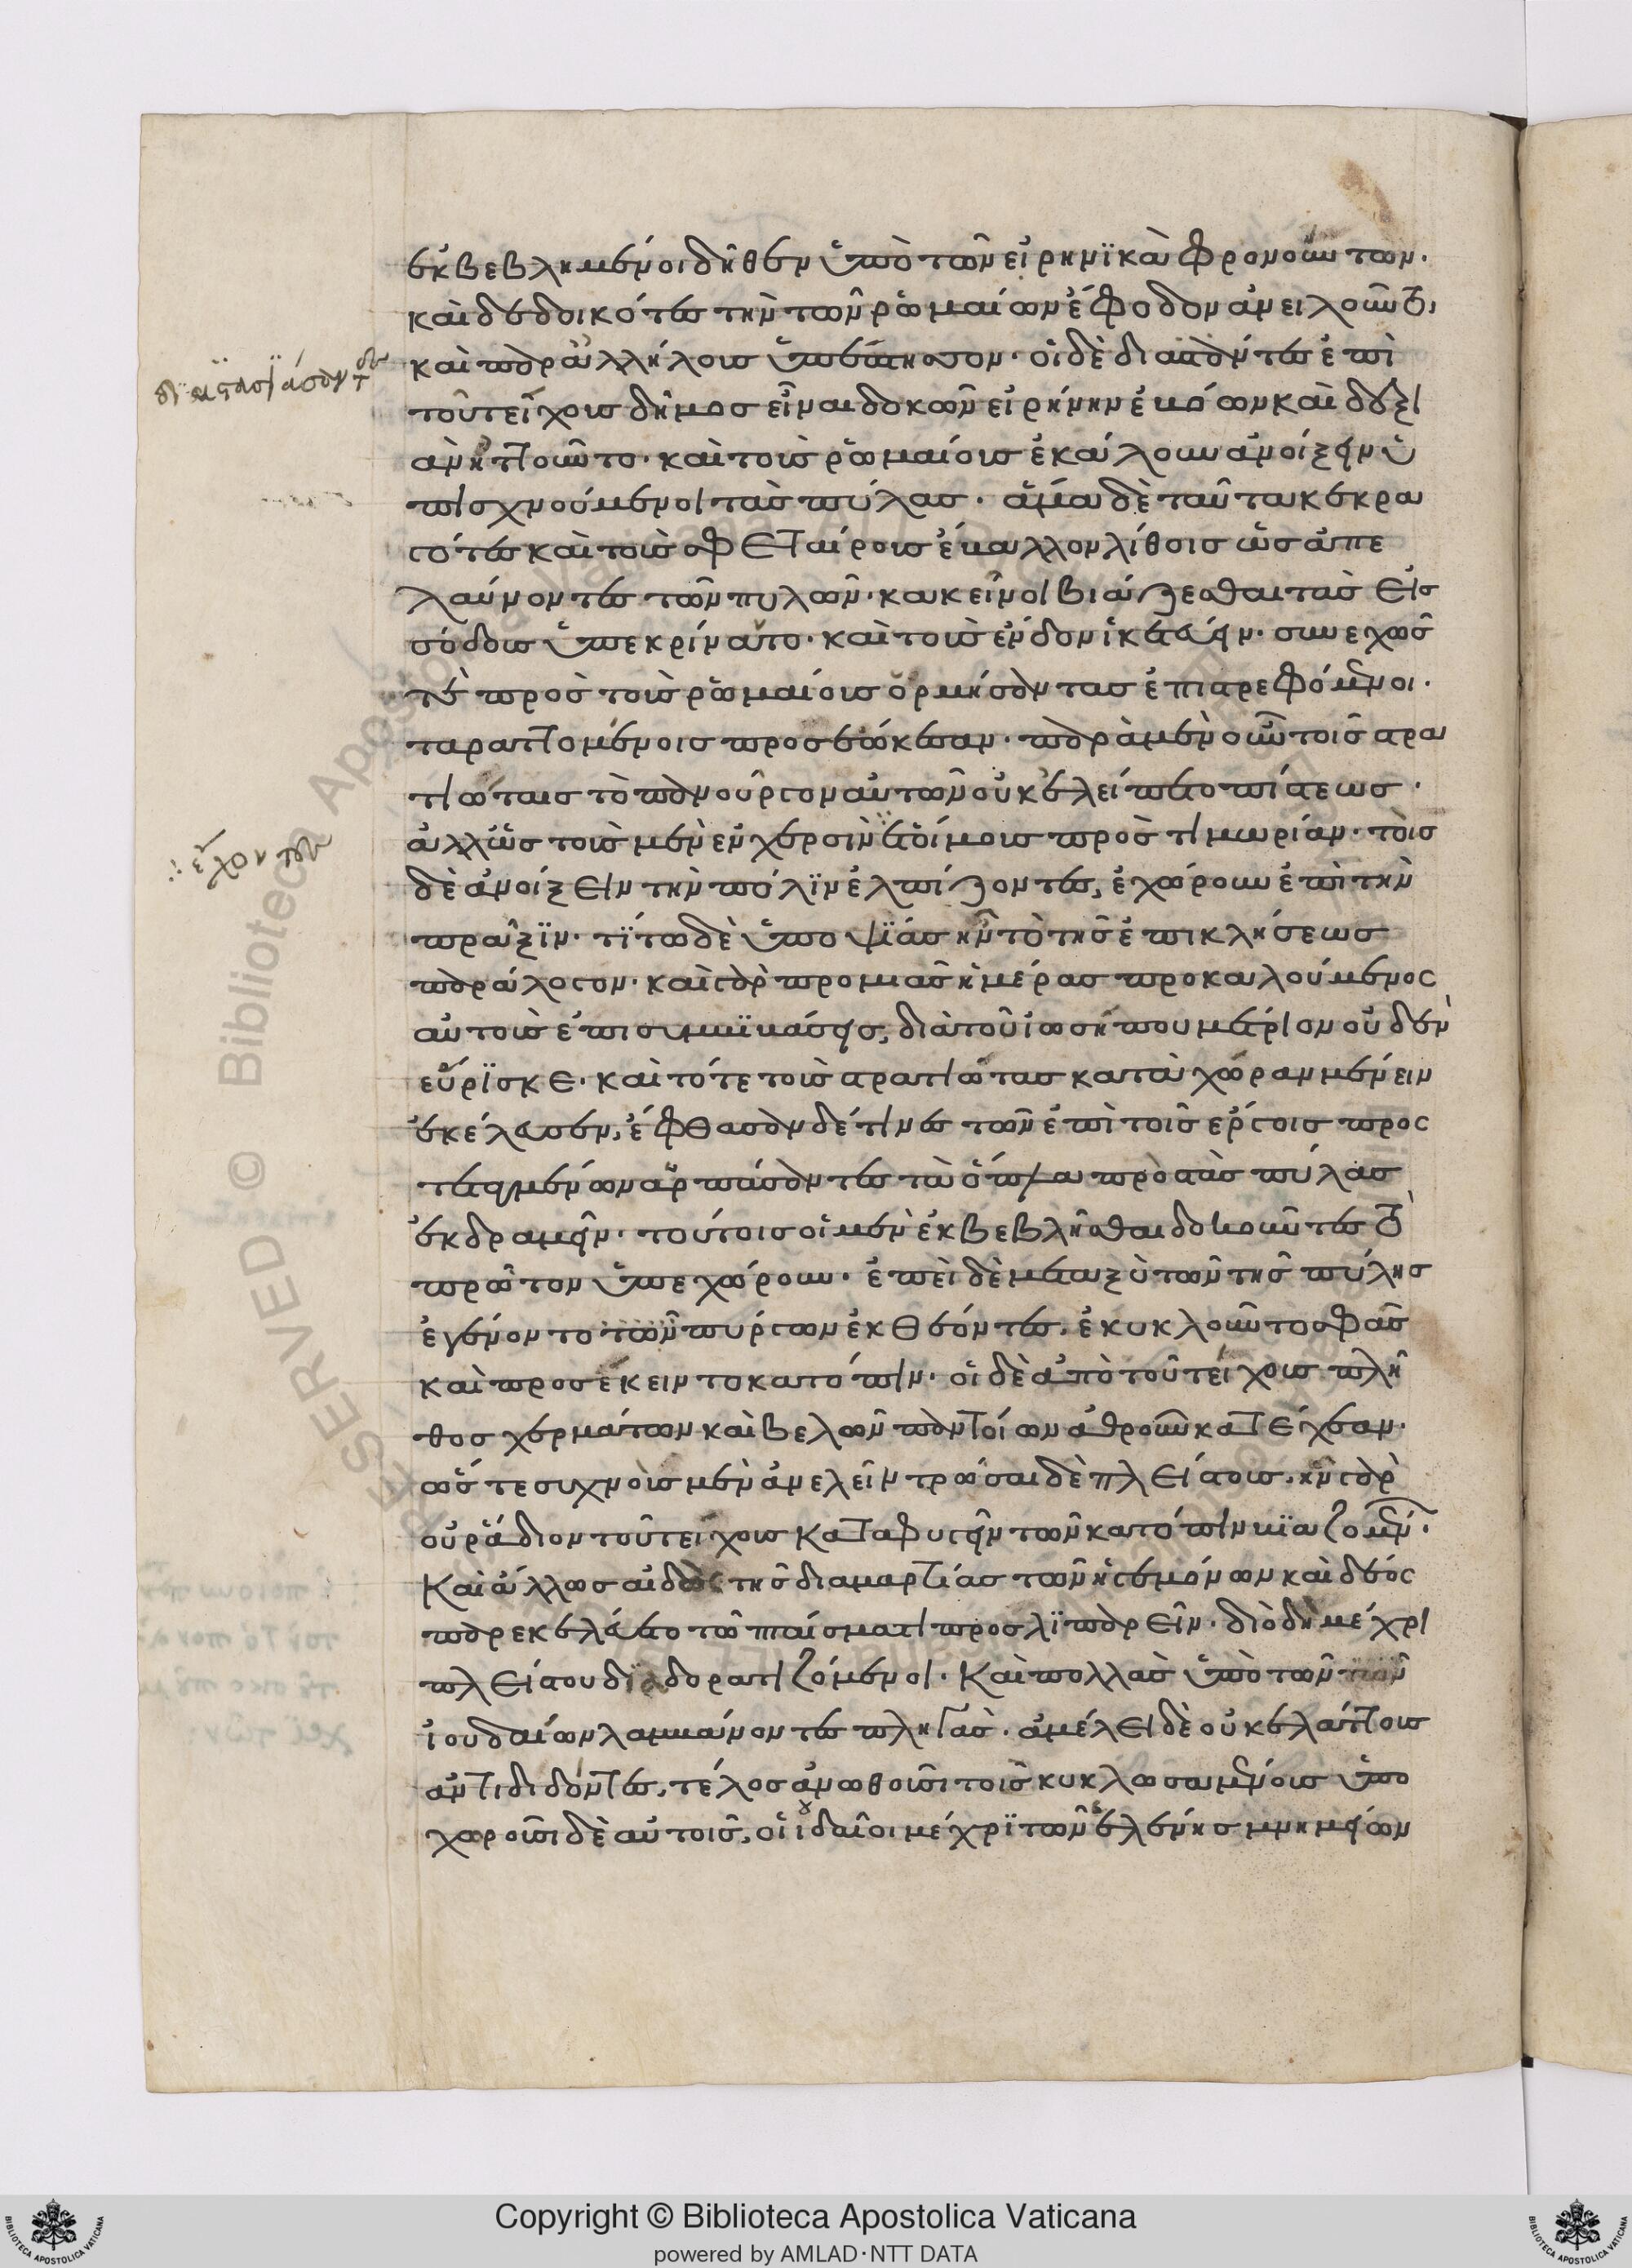 ἐκβεβλημένοι δῆθεν ὑπὸ τῶν εἰρηνϊκὰ φρονούντων.
καὶ δεδοικότες τὴν τῶν ῥωμαίων ἔφοδον ἀνειλοῦντο,
καὶ παρ' ἀλλήλοις ὑπέπτησσον. οἱ δὲ διαστάντες ἐπὶ
τοῦ τείχους δῆμος εἶναι δοκῶν εἰρήνην ἐβόων καὶ δεξι
ὰν ᾐτοῦντο. καὶ τοὺς ῥωμαίους ἐκάλουν ἀνοίξειν ὑ
πισχνούμενοι τὰς πύλας. ἅμα δὲ ταῦτα κεκρα
γότες καὶ τοὺς σφετέρους ἔβαλλον λίθοις ὡς ἀπε
λαύνοντες τῶν πυλῶν. κἀκεῖνοι βιάζεσθαι τὰς εἰσ
όδους ὑπεκρίναντο. καὶ τοὺς ἔνδον ἱκετεύειν. συνεχῶς
τὲ πρὸς τοὺς ῥωμαίους ὁρμήσαντας ἐπιστρεφόμενοι.
ταραττομένοις προσεῴκεσαν. παρὰ μὲν οὖν τοῖς στρα
τιώταις τὸ πανοῦργον αὐτῶν οὐκ ἐλείπετο πίστεως.
ἀλλ' ὡς τοὺς μὲν ἐν χερσὶν ἑτοίμους πρὸς τιμωρίαν. τοὺς
δὲ ἀνοίξειν τὴν πόλϊν ἐλπίζοντες, ἐχώρουν ἐπὶ τὴν
πρᾶξϊν. τίτω δὲ ὑποψίας ἦν τὸ τῆς ἐπικλήσεως
παράλογον. καὶ γὰρ πρὸ μιᾶς ἡμέρας προκαλούμενος
αὐτοὺς ἐπὶ συμβάσεις, διὰ τοῦ ἰωσήπου μέτριον οὐδὲν
εὕρϊσκε. καὶ τότε τοὺς στρατιώτας κατὰ χώραν μένειν
ἐκέλευσεν, ἔφθασαν δέ τινες τῶν ἐπὶ τοῖς ἔργοις προ
τεταγμένων ἁρπάσαντες τὰ ὅπλα πρὸς τὰς πύλας
ἐκδραμεῖν. τούτοις οἱ μὲν ἐκβεβλῆσθαι δοκοῦντες τὸ
πρῶτον ὑπεχώρουν. ἐπεὶ δὲ μεταξὺ τῶν τῆς πύλης
ἐγένοντο τῶν πύργων ἐκθέοντες, ἐκυκλοῦντο σφᾶς
καὶ προσέκειντο κατόπιν. οἱ δὲ ἀπὸ τοῦ τείχους πλῆ
θος χερμάτων καὶ βελῶν παντοίων ἀθροῦν κατέχεαν.
ὥστε συχνοὺς μὲν ἀνελεῖν τρῶσαι δὲ πλείστους. ἦν γὰρ
οὐ ῥάδιον τοῦ τείχους καταφυγεῖν τῶν κατόπιν βϊαζομένων.
καὶ ἄλλως αἰδὼς τῆς διαμαρτίας τῶν ἡγεμόνων καὶ δέος
παρεκελεύετο τῷ πταίσματι προσλϊπαρεῖν. διὸ δὴ μέχρι
πλείστου διαδορατιζόμενοι. καὶ πολλὰς ὑπὸ τῶν τῶν
ἰουδαίων λαμβάνοντες πληγὰς. ἀμέλει δὲ οὐκ ἐλάττους
ἀντιδιδόντες, τέλος ἀνωθοῦσι τοὺς κυκλωσαμένους ὑπο
χωροῦσι δὲ αὐτοῖς, οἱ ἰουδαῖοι μέχρϊ τῶν ἑλένης μνημείων
διαστασιάσαντες
εἷλον